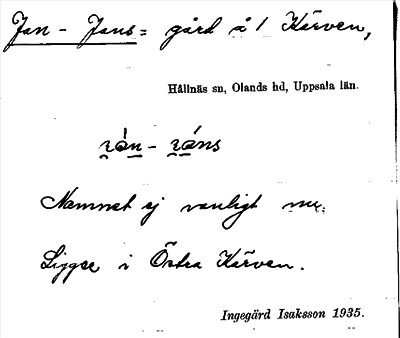 Jan - Jans = gård å / Kärven,
Hållnäs sn, Olands hd, Uppsala län.
Namnet ej vanligt nu.
Ligger i Östra Kärven.
Ingegärd Isaksson 1935.